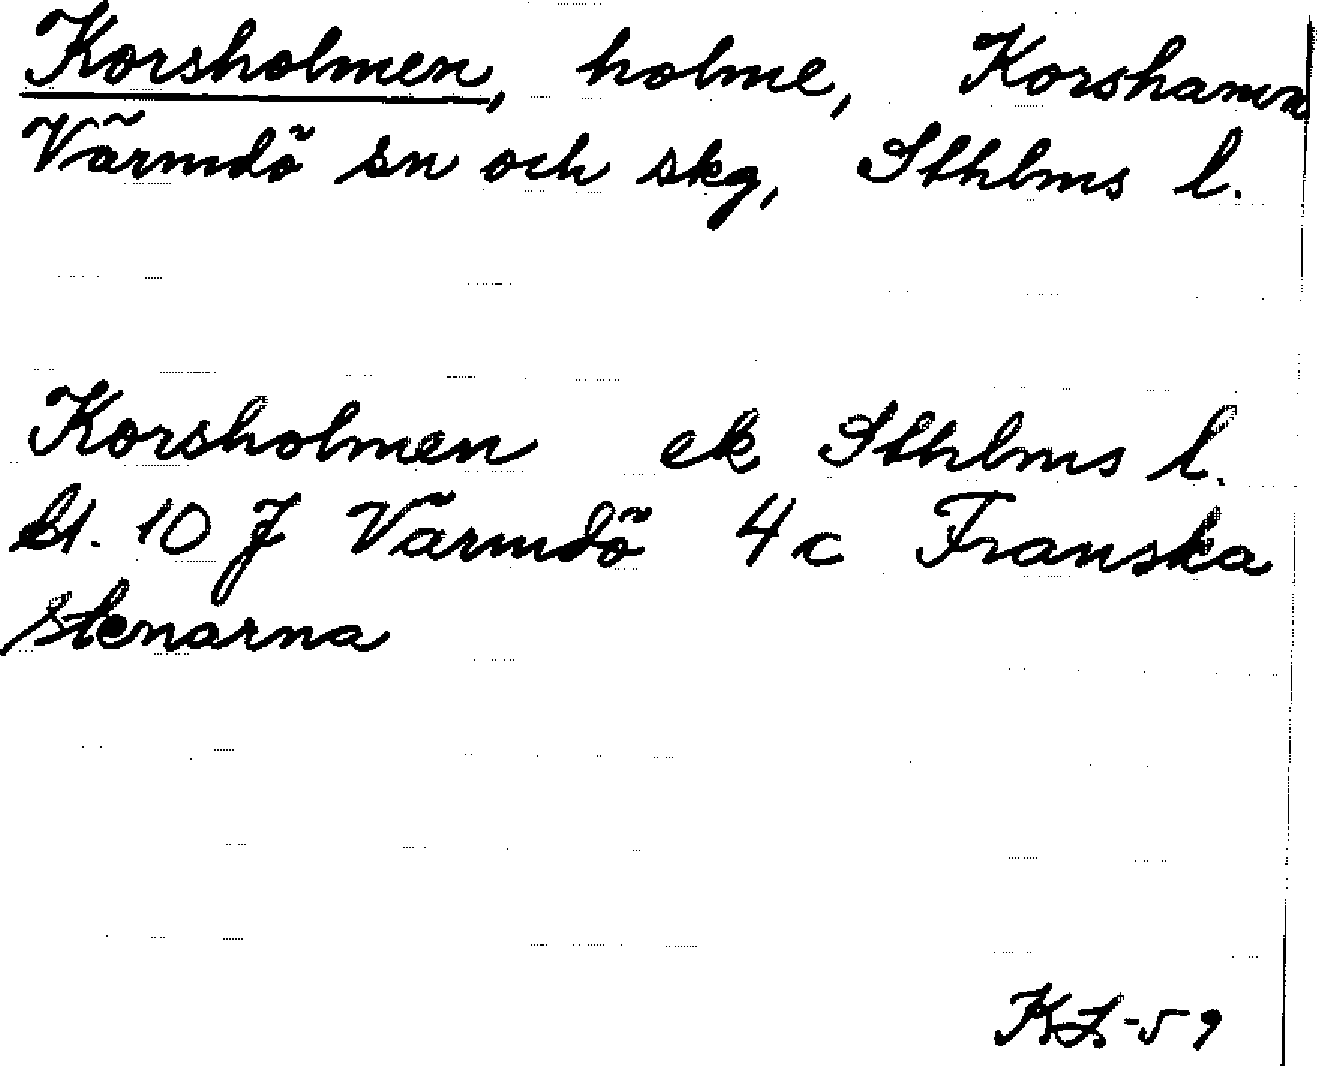 Korsholmen, holme, Korshamn
Värmdö sn och skg, Sthlms l.
Korsholmen ek Sthlms l.
bl. 10 J Värmdö 4c Franska
stenarna
KL-59